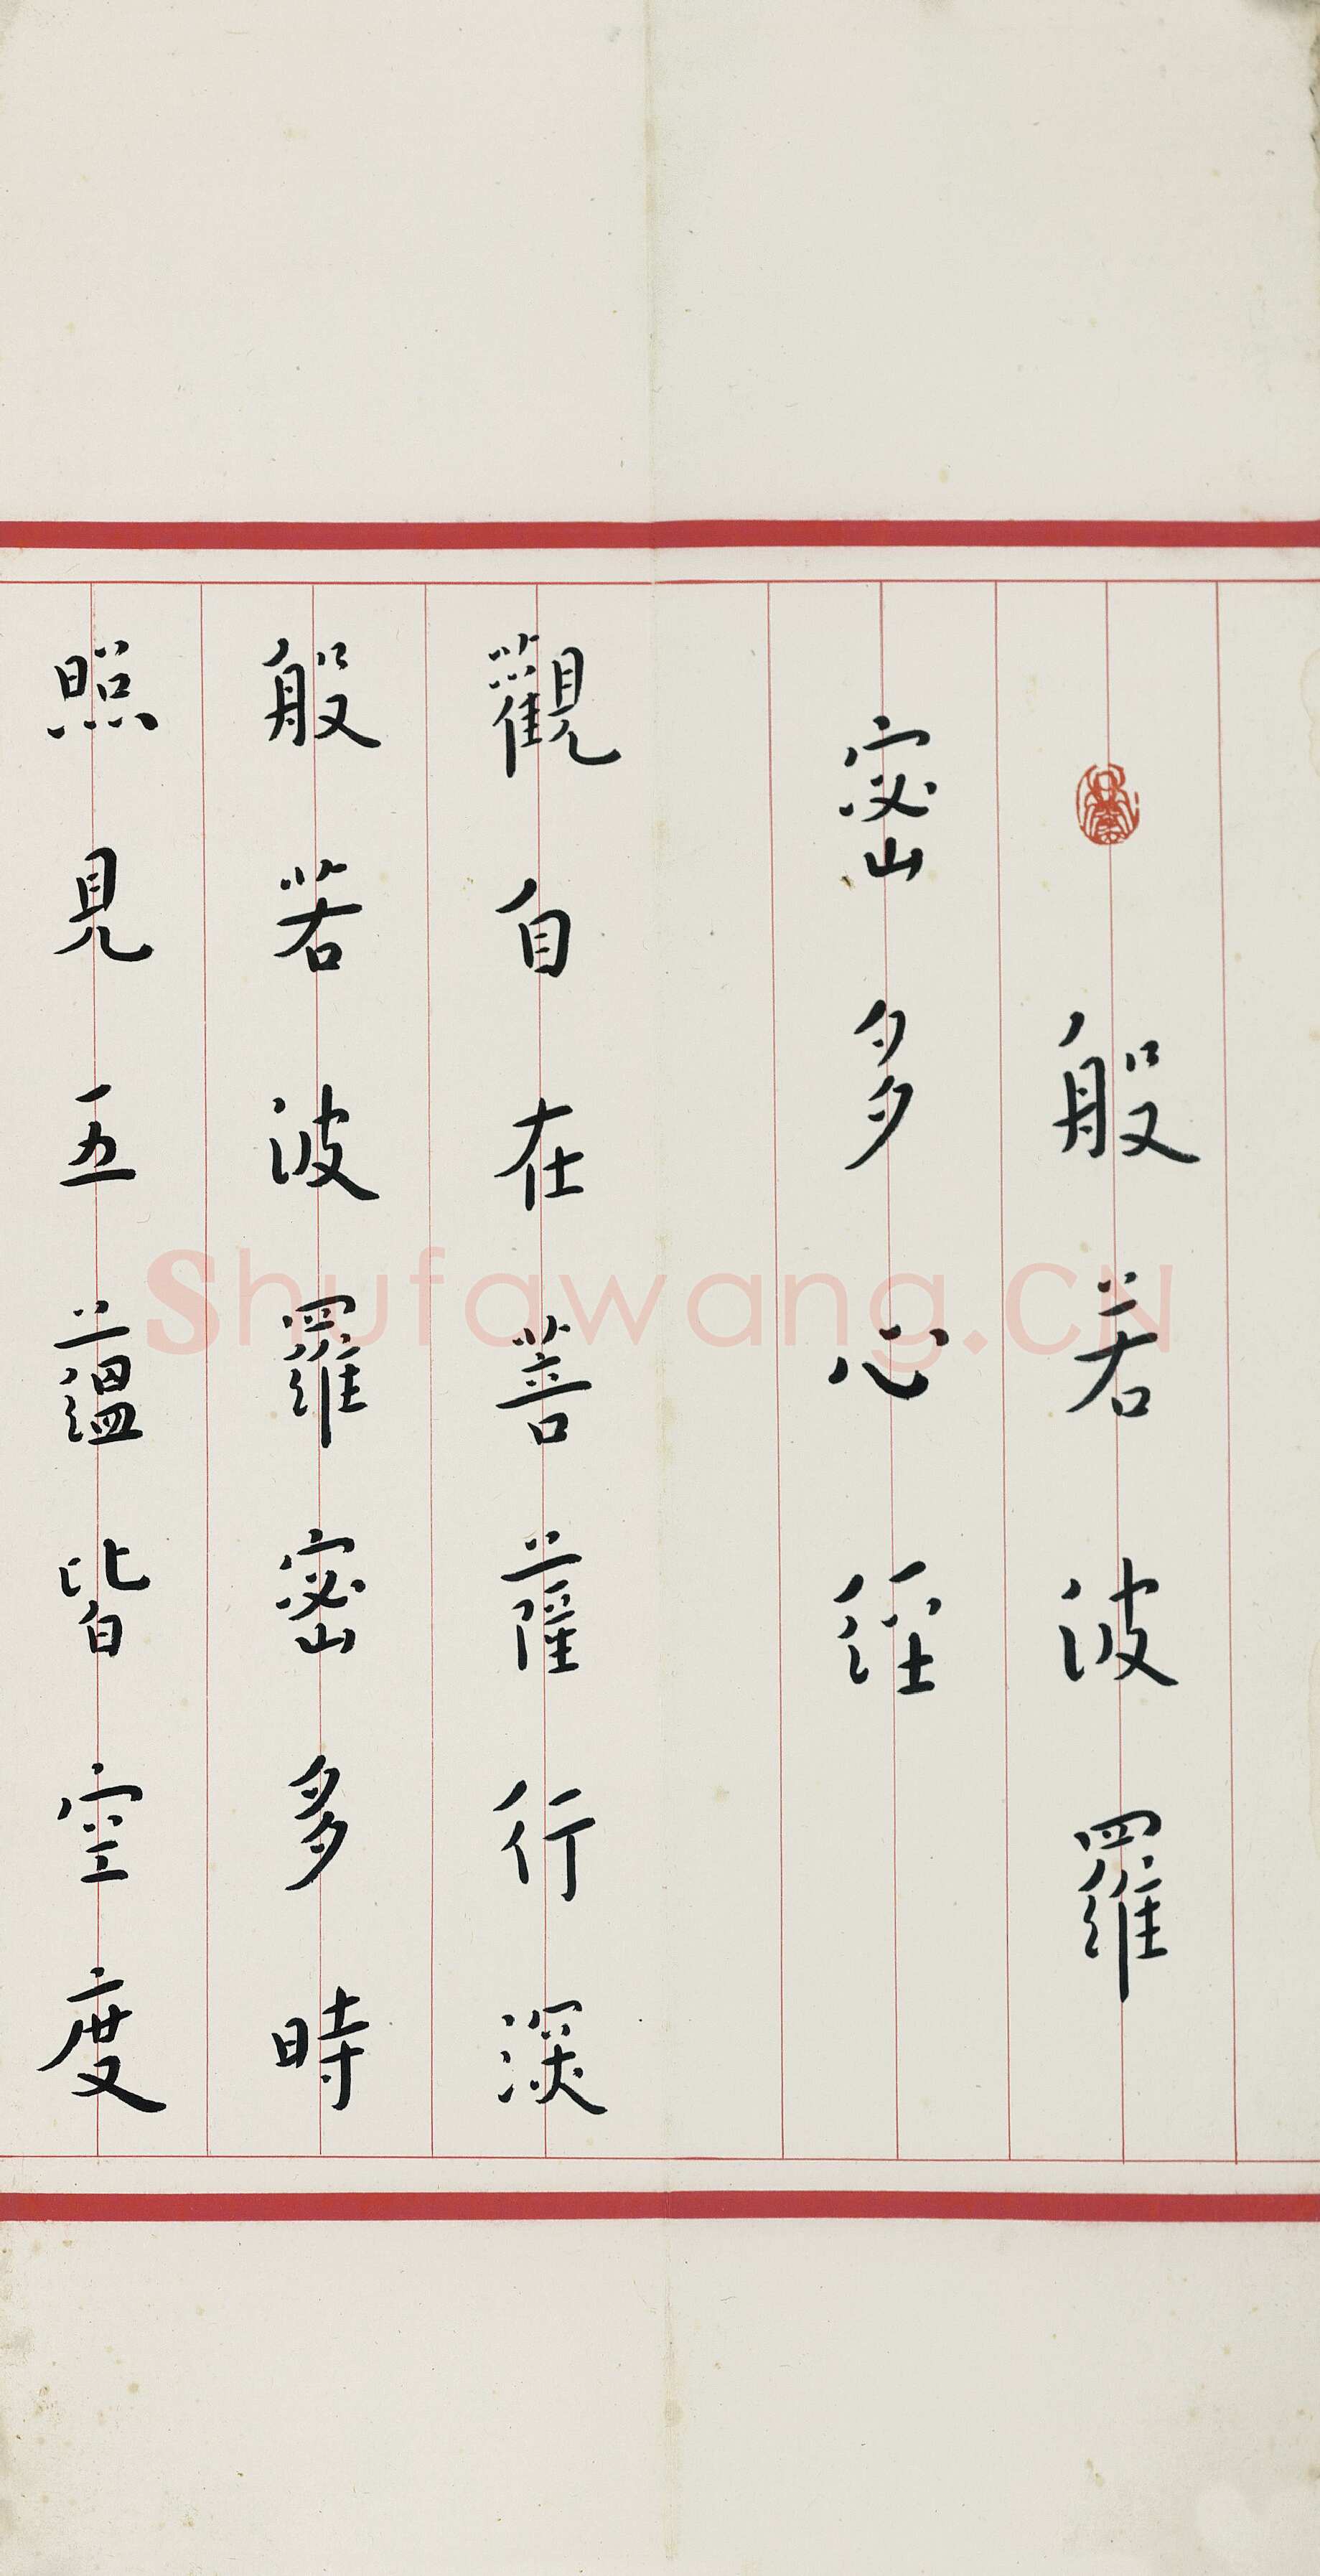 般若波羅
密多心經
觀自在菩薩行深
般若波羅密多時
照見五蘊皆空度
Shufawang.CN